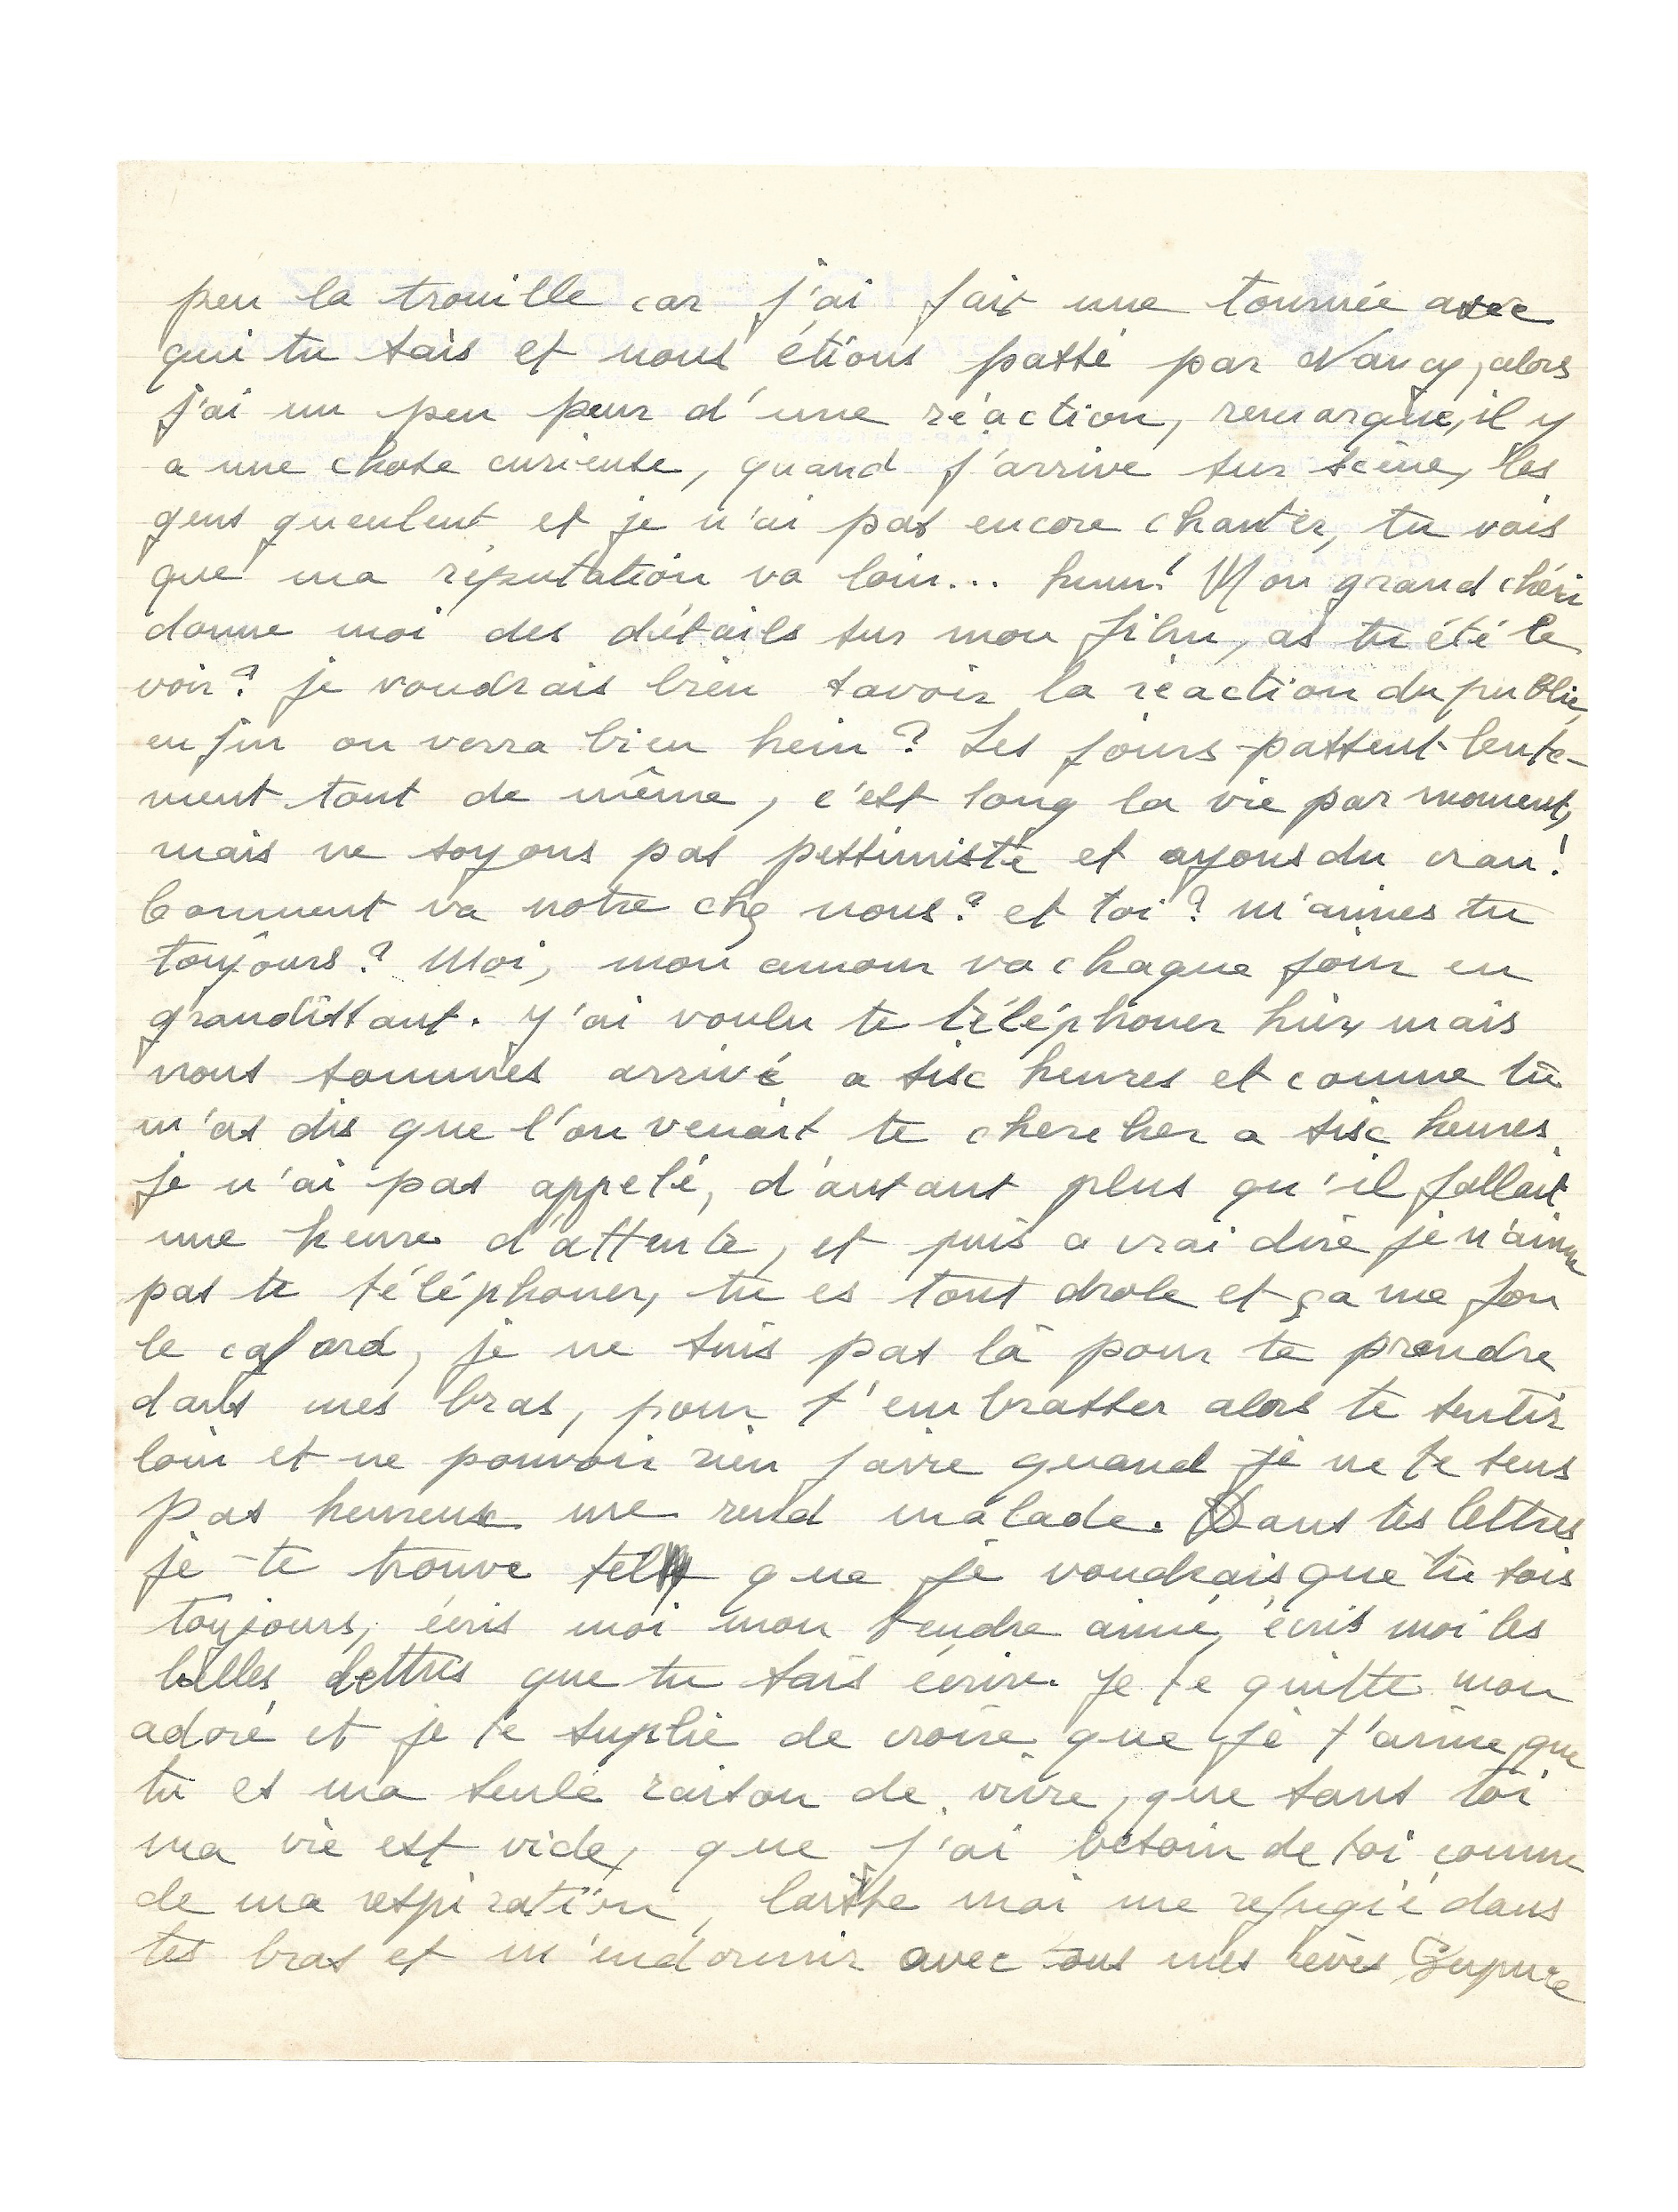 peu la trouille car j'ai fait une tournée avec
qui tu sais et nous étions passé par Nancy, alors
j'ai un peu peur d'une réaction, remarque, il y
a une chose curieuse, quand j'arrive sur scène, les
gens gueulent et je n'ai pas encore chanter, tu vois
que ma réputation va loin... hum! Mon grand chéri
donne moi des détails sur mon film, as tu été le
voir? je voudrais bien savoir la réaction du public,
enfin on verra bien hein? Les jours passent lente-
ment tout de même, c'est long la vie par moment,
mais ne soyons pas pessimiste et ayons du cran!
Comment va notre chez nous? et toi? m'aimes tu
toujours? Moi, mon amour va chaque jour en
grandissant. J'ai voulu te téléphoner hier, mais
nous sommes arrivé a six heures et comme tu
m'as dis que l'on venait te chercher a six heures
je n'ai pas appelé, d'autant plus qu'il fallait
une heure d'attente, et puis a vrai dire je n'aime
pas te téléphoner, tu es tout drole et ça me fou
le cafard, je ne suis pas là pour te prendre
dans mes bras, pour t'embrasser alors te sentir
loin et ne pouvoir rien faire quand je ne te sens
pas heureux me rend malade. Dans tes lettres
je te trouve tel que je voudrais que tu sois
toujours, écris moi mon tendre aimé, écris moi les
belles lettres que tu sais écrire. Je te quitte mon
adoré et je te suplie de croire que je t'aime, que
tu es ma seule raison de vivre, que sans toi
ma vie est vide, que j'ai besoin de toi comme
de ma respiration, laisse moi me refugié dans
tes bras et m'endormir avec tous mes rèves